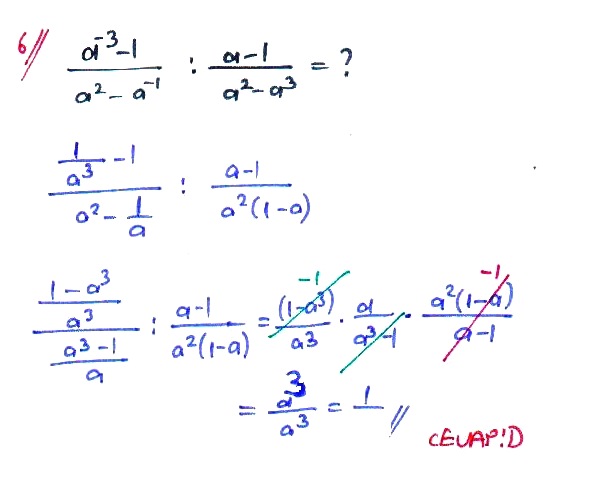 6// (a⁻³-1)/(a²-a⁻¹) : (a-1)/(a²-a³) = ?
(1/a³ -1)/(a²- 1/a) : (a-1)/(a²(1-a))
((1-a³)/a³)/((a³-1)/a) : (a-1)/(a²(1-a)) = (1-a³)/a³ · a/(a³-1) · a²(1-a)/(a-1) -1 -1
= a³/a³ = 1 //
CEVAP!D